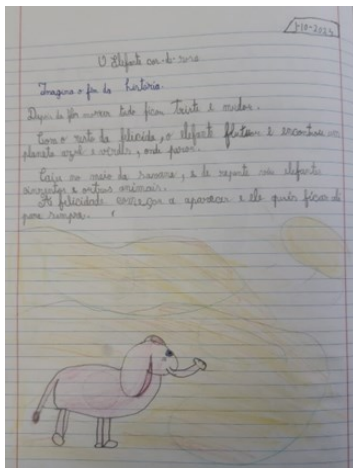 10-2023
O Elefante cor-de-rosa
Imagina o fim da história.
Depois da flor morrer tudo ficou triste e mudou.
Com o resto da felicidade, o elefante flutuou e encontrou um
planeta azul e verde, onde parou.
Caiu no meio da savana, e de repente viu elefantes
cinzentos e outros animais.
A felicidade começou a aparecer e ele quis ficar ali
para sempre.